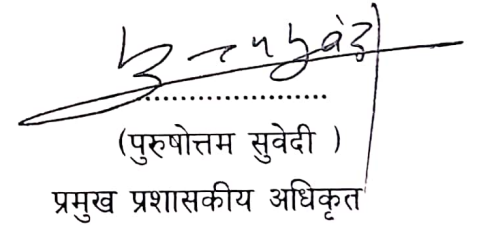 ....................
(पुरुषोत्तम सुवेदी )
प्रमुख प्रशासकीय अधिकृत